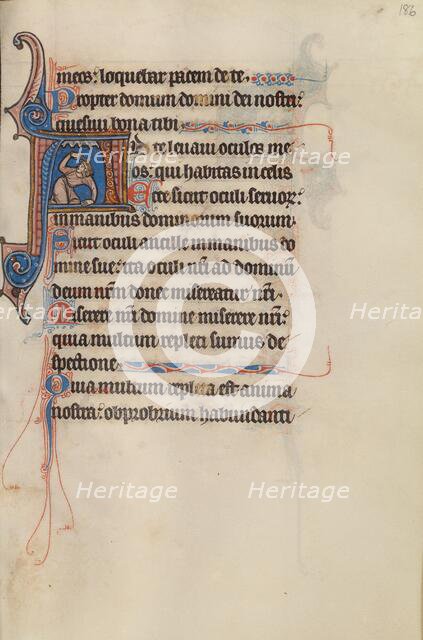 186
meos: loquebar pacem de te
Propter domum domini dei nostri:
quesiui bona tibi
Ad te leuaui oculos me
os: qui habitas in celis
Ecce sicut oculi seruorꝝ
in manibus dominorum suorum
Sicut oculi ancille in manibus do
mine sue: ita oculi nr̄i ad dominū
deum nr̄m donec misereatur nr̄i
Miserere nr̄i domine miserere nr̄i:
quia multum repleti sumus de
spectione
Quia multum repleta est anima
nostra: obprobrium habundanti
Heritage Heritage
Heritage Heritage Heritage
Heritage Heritage